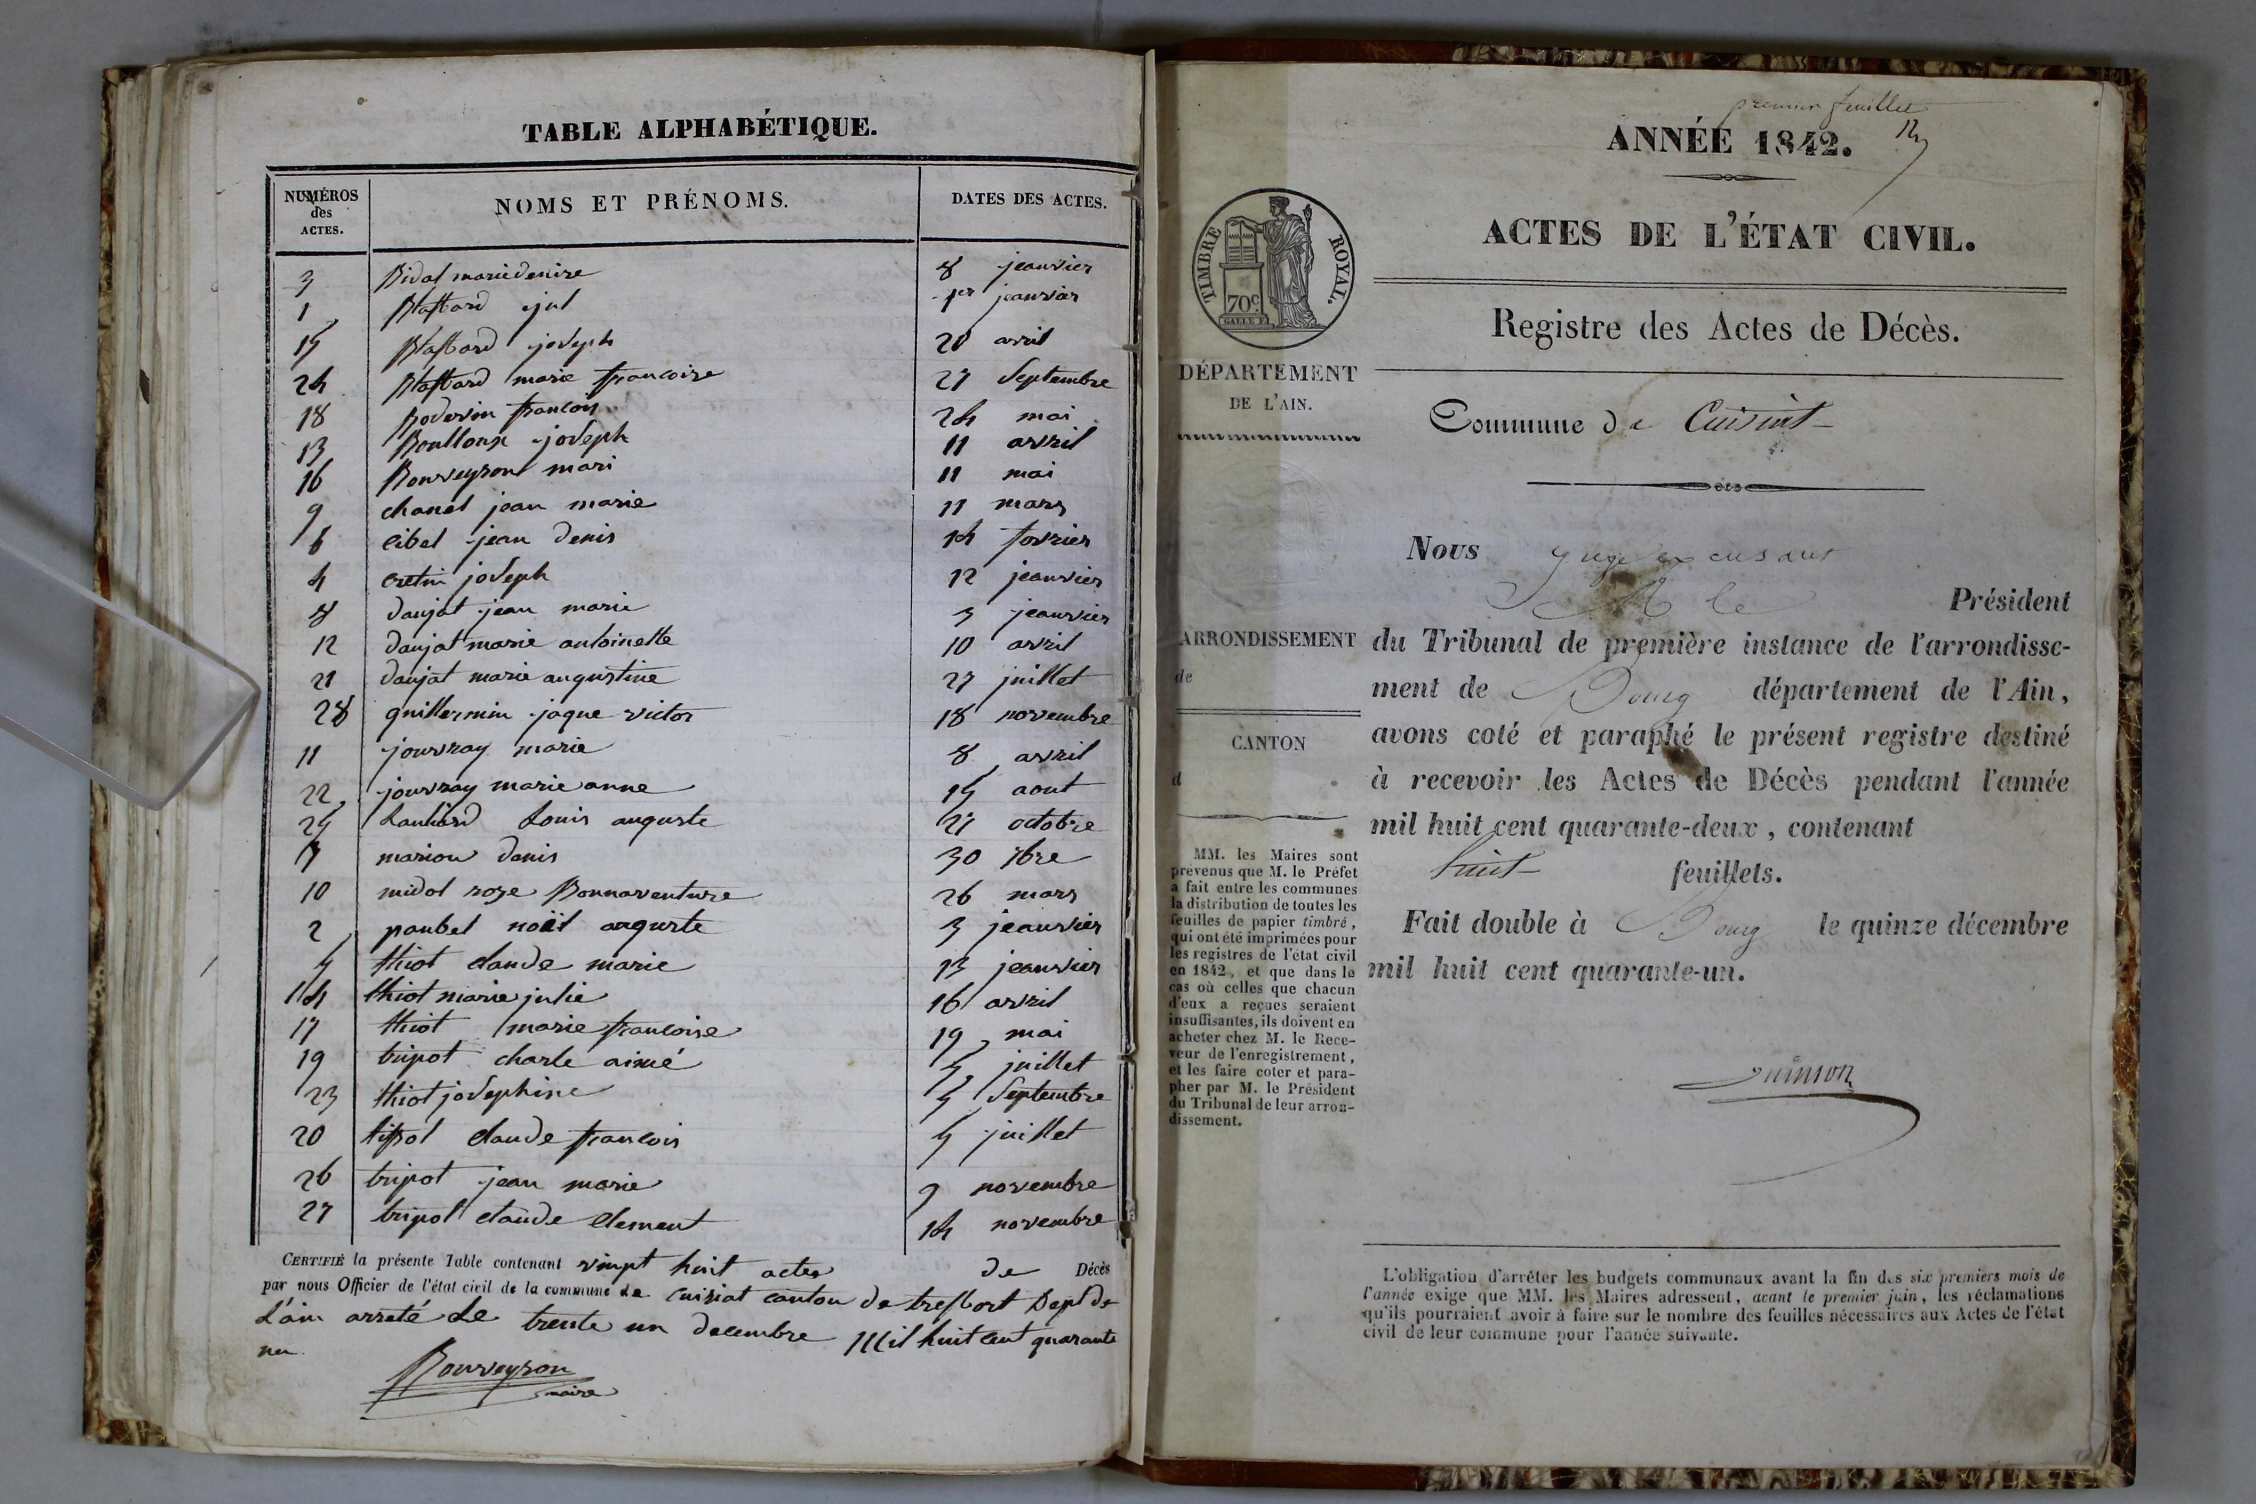 TABLE ALPHABÉTIQUE.
NUMÉROS des ACTES. NOMS ET PRÉNOMS. DATES DES ACTES.
3 Bidal marie denise 8 jeanvier
1 Blaffard jul 1er jeanvier
15 Blaffard joseph 20 avril
24 Blaffard marie francoise 27 Septembre
18 Boderin francois 24 mai
13 Boulloux joseph 11 avril
16 Bouveyron mari 11 mai
9 chanel jean marie 11 mars
6 cibel jean denis 14 fevrier
4 cretin joseph 12 jeanvier
8 daujat jean marie 3 jeanvier
12 daujat marie antoinette 10 avril
21 daujat marie augustine 27 juillet
28 guillermin jaque victor 18 novembre
11 jouvray marie 8 avril
22 jouvray marie anne 15 aout
25 Louis auguste 21 octobre
7 marion denis 30
10 midol roze Bonnaventure 26 mars
2 paubel noël auguste 3 jeanvier
5 thiot claude marie 13 jeanvier
14 thiot marie julie 16 avril
17 thiot marie francoise 19 mai
19 tripot charle aimé 5 juillet
23 thiot josephine 5 Septembre
20 claude francois 5 juillet
26 tripot jean marie 9 novembre
27 tripot claude Clement 14 novembre
CERTIFIÉ la présente Table contenant vingt huit actes de Décès
par nous Officier de l'état civil de la commune de cuisiat canton de treffort Dept de
L'ain arreté Le trente un decembre Mil huit cent quarante
un.
Bouveyron
maire
premier feuillet
ANNÉE 1842.
ACTES DE L'ÉTAT CIVIL.
TIMBRE ROYAL.
70c
Registre des Actes de Décès.
DÉPARTEMENT
DE L'AIN.
Commune de Cuisiat
Nous juge
le Président
ARRONDISSEMENT
de
du Tribunal de première instance de l'arrondisse-
ment de Bourg département de l'Ain,
CANTON
d
avons coté et paraphé le présent registre destiné
à recevoir les Actes de Décès pendant l'année
mil huit cent quarante-deux, contenant
huit feuillets.
Fait double à Bourg le quinze décembre
mil huit cent quarante-un.
MM. les Maires sont
prévenus que M. le Préfet
a fait entre les communes
la distribution de toutes les
feuilles de papier timbré,
qui ont été imprimées pour
les registres de l'état civil
en 1842, et que dans le
cas où celles que chacun
d'eux a reçues seraient
insuffisantes, ils doivent en
acheter chez M. le Rece-
veur de l'enregistrement,
et les faire coter et para-
pher par M. le Président
du Tribunal de leur arron-
dissement.
L'obligation d'arrêter les budgets communaux avant la fin des six premiers mois de
l'année exige que MM. les Maires adressent, avant le premier juin, les réclamations
qu'ils pourraient avoir à faire sur le nombre des feuilles nécessaires aux Actes de l'état
civil de leur commune pour l'année suivante.